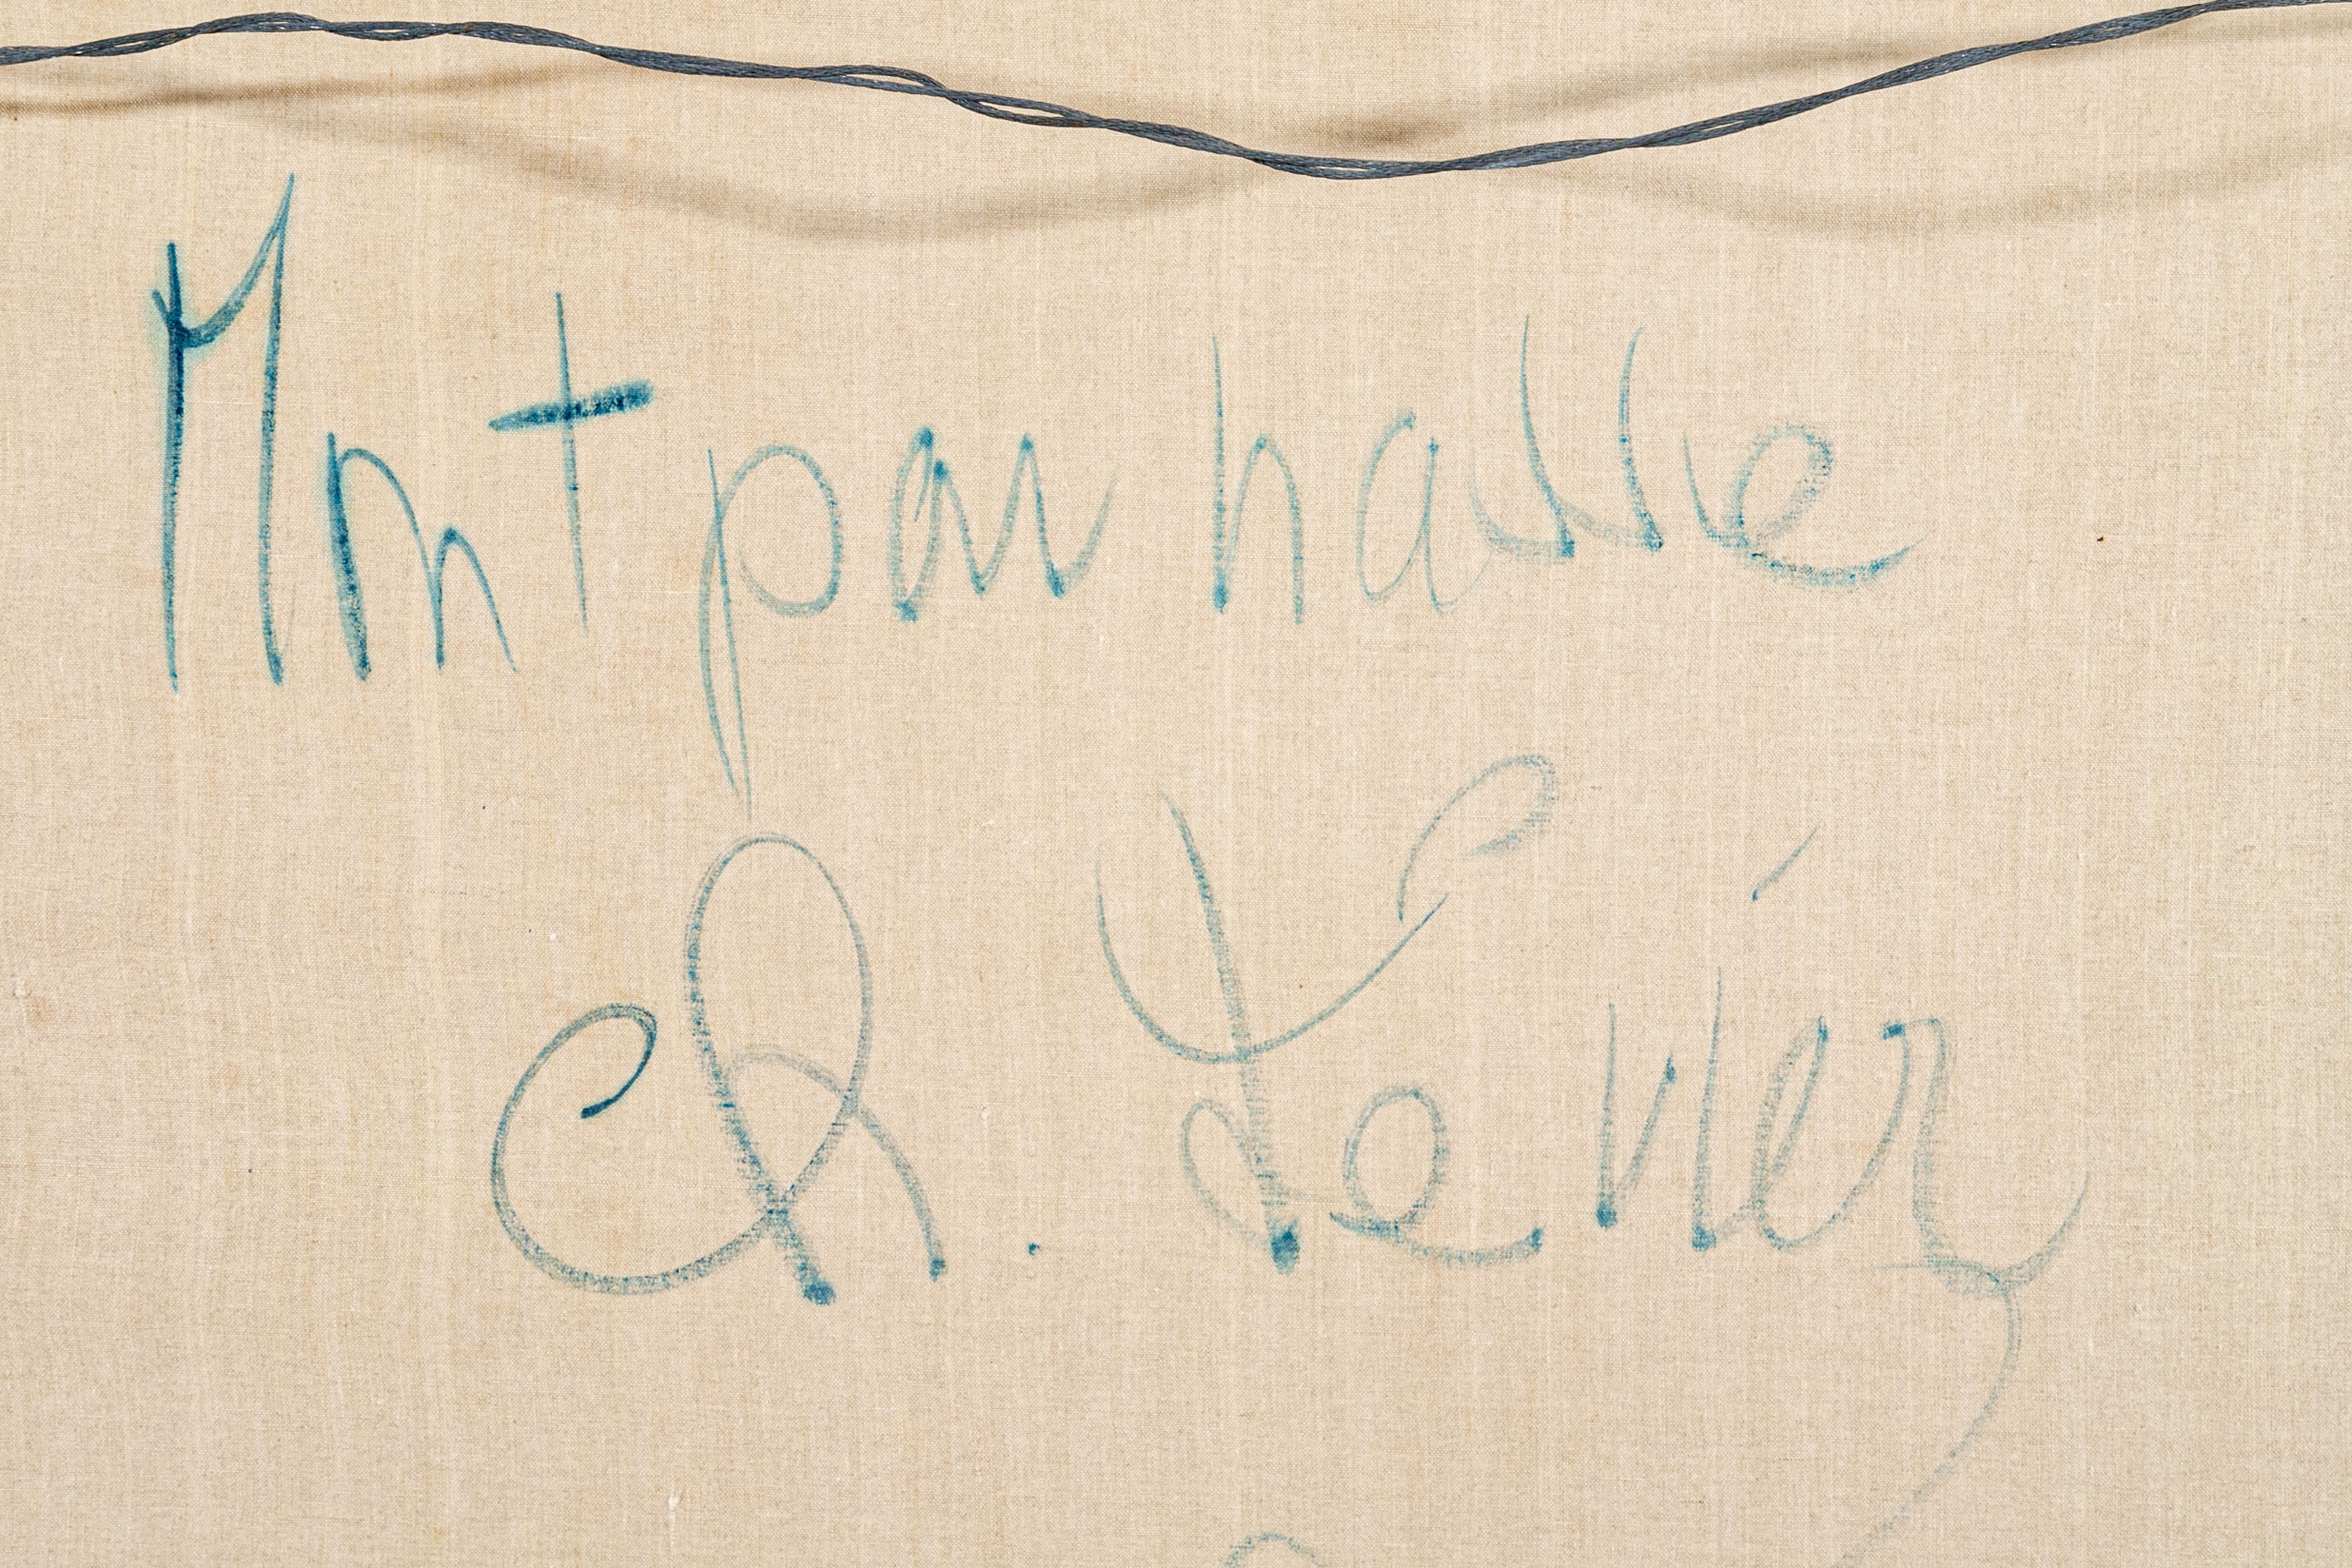 Mntparnasse
Ch. Levier